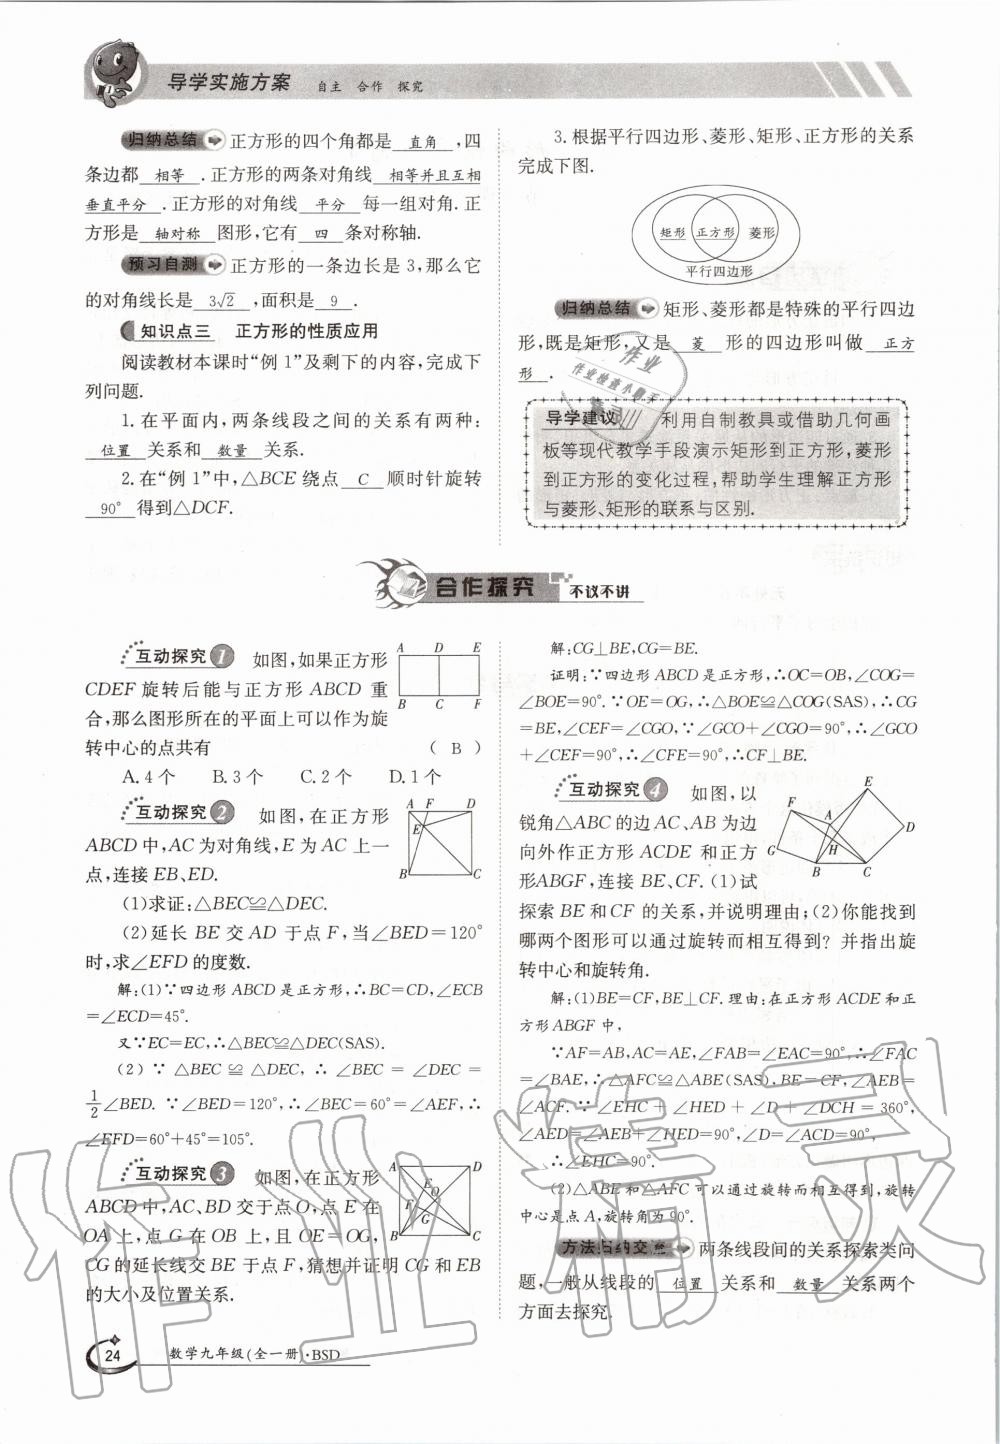 导学实施方案 自主 合作 探究
归纳总结 正方形的四个角都是 直角 ,四
条边都 相等 .正方形的两条对角线 相等并且互相
垂直平分 .正方形的对角线 平分 每一组对角.正
方形是 轴对称 图形,它有 四 条对称轴.
预习自测 正方形的一条边长是3,那么它
的对角线长是 3√2 ,面积是 9 .
知识点三 正方形的性质应用
阅读教材本课时“例1”及剩下的内容,完成下
列问题.
1.在平面内,两条线段之间的关系有两种:
位置 关系和 数量 关系.
2.在“例1”中,△BCE绕点 C 顺时针旋转
90° 得到△DCF.
3.根据平行四边形、菱形、矩形、正方形的关系
完成下图.
矩形 正方形 菱形
平行四边形
归纳总结 矩形、菱形都是特殊的平行四边
形,既是矩形,又是 菱 形的四边形叫做 正方
形 .
导学建议 利用自制教具或借助几何画
板等现代教学手段演示矩形到正方形,菱形
到正方形的变化过程,帮助学生理解正方形
与菱形、矩形的联系与区别.
合作探究 不议不讲
互动探究1 如图,如果正方形
CDEF旋转后能与正方形ABCD重
合,那么图形所在的平面上可以作为旋
转中心的点共有 ( B )
A.4个 B.3个 C.2个 D.1个
A D E
B C F
互动探究2 如图,在正方形
ABCD中,AC为对角线,E为AC上一
点,连接EB、ED.
A F D
E
B C
(1)求证:△BEC≌△DEC.
(2)延长BE交AD于点F,当∠BED=120°
时,求∠EFD的度数.
解:(1)∵四边形ABCD是正方形,∴BC=CD,∠ECB
=∠ECD=45°.
又∵EC=EC,∴△BEC≌△DEC(SAS).
(2)∵△BEC≌△DEC,∴∠BEC=∠DEC=
1/2∠BED.∵∠BED=120°,∴∠BEC=60°=∠AEF,∴
∠EFD=60°+45°=105°.
互动探究3 如图,在正方形
ABCD中,AC、BD交于点O,点E在
OA上,点G在OB上,且OE=OG,
CG的延长线交BE于点F,猜想并证明CG和EB
的大小及位置关系.
A D
E O
F G
B C
解:CG⊥BE,CG=BE.
证明:∵四边形ABCD是正方形,∴OC=OB,∠COG=
∠BOE=90°.∵OE=OG,∴△BOE≌△COG(SAS),∴CG
=BE,∠CEF=∠CGO,∵∠GCO+∠CGO=90°,∴∠GCO
+∠CEF=90°,∴∠CFE=90°,∴CF⊥BE.
互动探究4 如图,以
锐角△ABC的边AC、AB为边
向外作正方形ACDE和正方
形ABGF,连接BE、CF.(1)试
探索BE和CF的关系,并说明理由;(2)你能找到
哪两个图形可以通过旋转而相互得到?并指出旋
转中心和旋转角.
E
F A D
G H
B C
解:(1)BE=CF,BE⊥CF.理由:在正方形ACDE和正
方形ABGF中,
∵AF=AB,AC=AE,∠FAB=∠EAC=90°,∴∠FAC
=∠BAE,∴△AFC≌△ABE(SAS),BE=CF,∠AEB=
∠ACF.∵∠EHC+∠HED+∠D+∠DCH=360°,
∠AED=∠AEB+∠HED=90°,∠D=∠ACD=90°,
∴∠EHC=90°.
(2)△ABE和△AFC可以通过旋转而相互得到,旋转
中心是点A,旋转角为90°.
方法归纳交流 两条线段间的关系探索类问
题,一般从线段的 位置 关系和 数量 关系两个
方面去探究.
24 数学九年级(全一册)·BSD
作业
作业检查小助手
作业精灵